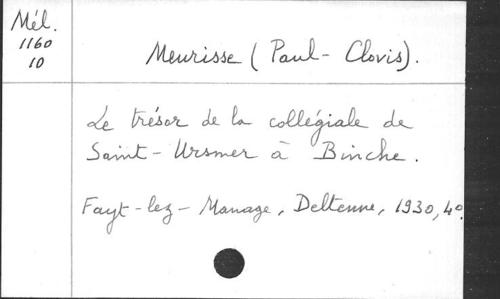 Mél.
1160
10
Meurisse (Paul-Clovis).
Le trésor de la collégiale de
Saint-Ursmer à Binche.
Fayt-lez-Manage, Deltenne, 1930, 4º.